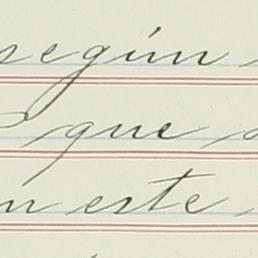 según
que
este